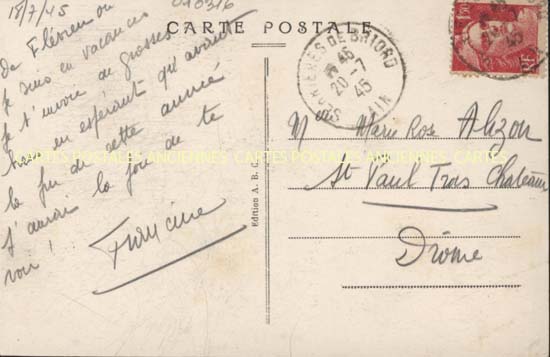 15/7/45
010316
CARTE POSTALE
de Flévieu ou
je suis en vacances
je t'envoie de grosses
bises en espérant qu'avant
la fin de cette année
j'aurai la joie de te
voir !
Francine
CARTES POSTALES ANCIENNES CARTES POSTALES ANCIENNES CARTES POSTALES ANCIENNES
Edition A. B. C.
SERRIÈRES DE BRIORD
20-7
45
AIN
1F50
RF
Marie Rose Alizon
St Paul Trois Châteaux
Drôme